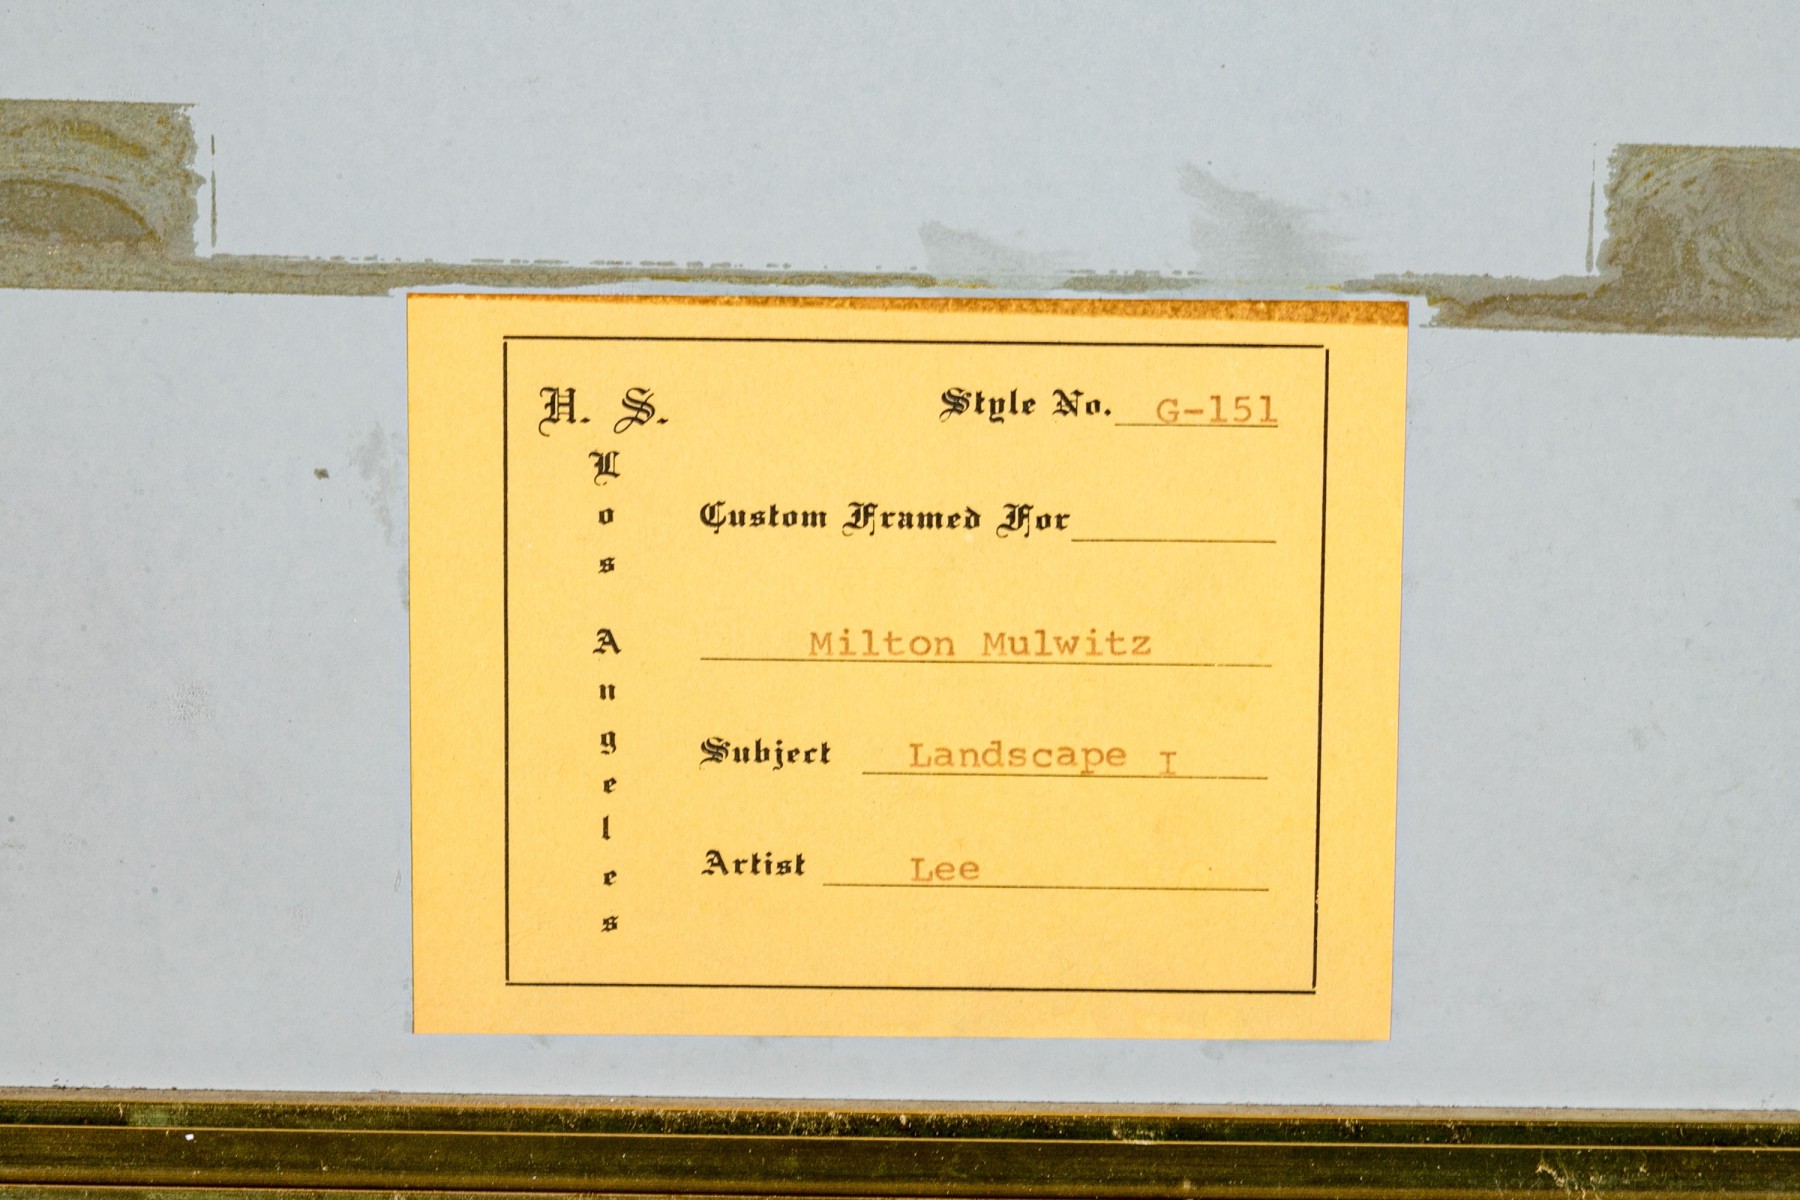 H. S.
Los Angeles
Style No. G-151
Custom Framed For
Milton Mulwitz
Subject Landscape I
Artist Lee